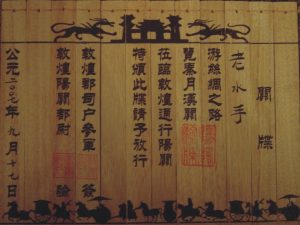 關牒
老水手
游絲綢之路
覽秦月漢關
莅臨敦煌通行陽關
特頒此牒請予放行
敦煌郡司户參軍 簽
敦煌陽關都尉 驗
公元二〇一七年九月十七日